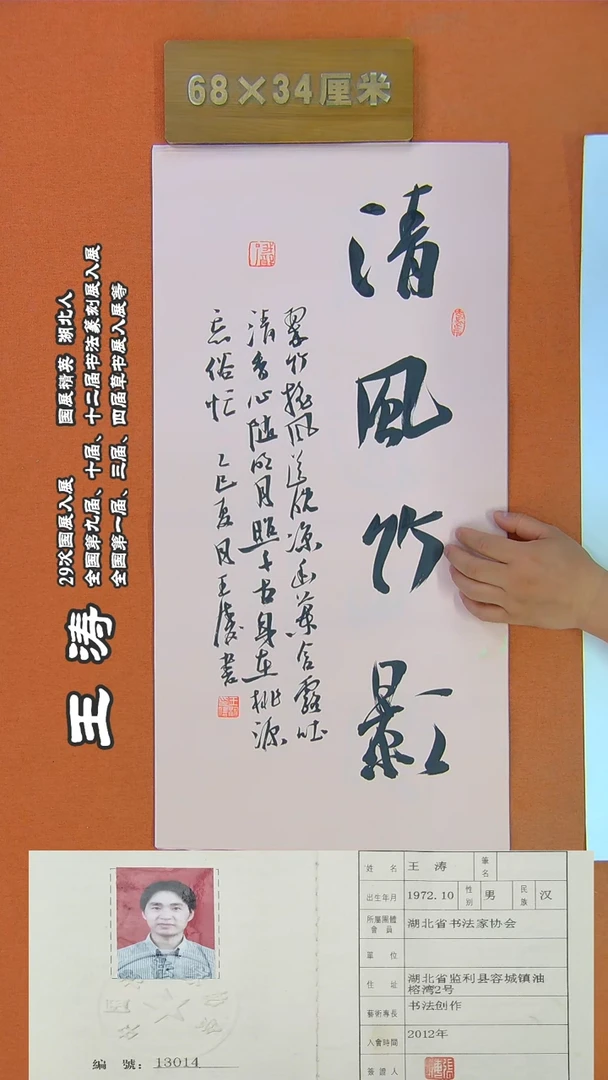 68×34厘米
清風竹影
翠竹摇风送晚凉幽蘭含露吐
清香心随明月照千古身在桃源
忘俗忙 乙巳夏月王濤書
王涛
29次国展入展 国展精英 湖北人
全国第九届、十届、十二届书法篆刻展入展
全国第一届、三届、四届草书展入展等
編 號：13014
姓 名 王 涛 筆名
出生年月 1972.10 性别 男 民族 汉
所屬團體會員 湖北省书法家协会
單 位
住 址 湖北省监利县容城镇油榕湾2号
藝術專長 书法创作
入會時間 2012年
簽證人